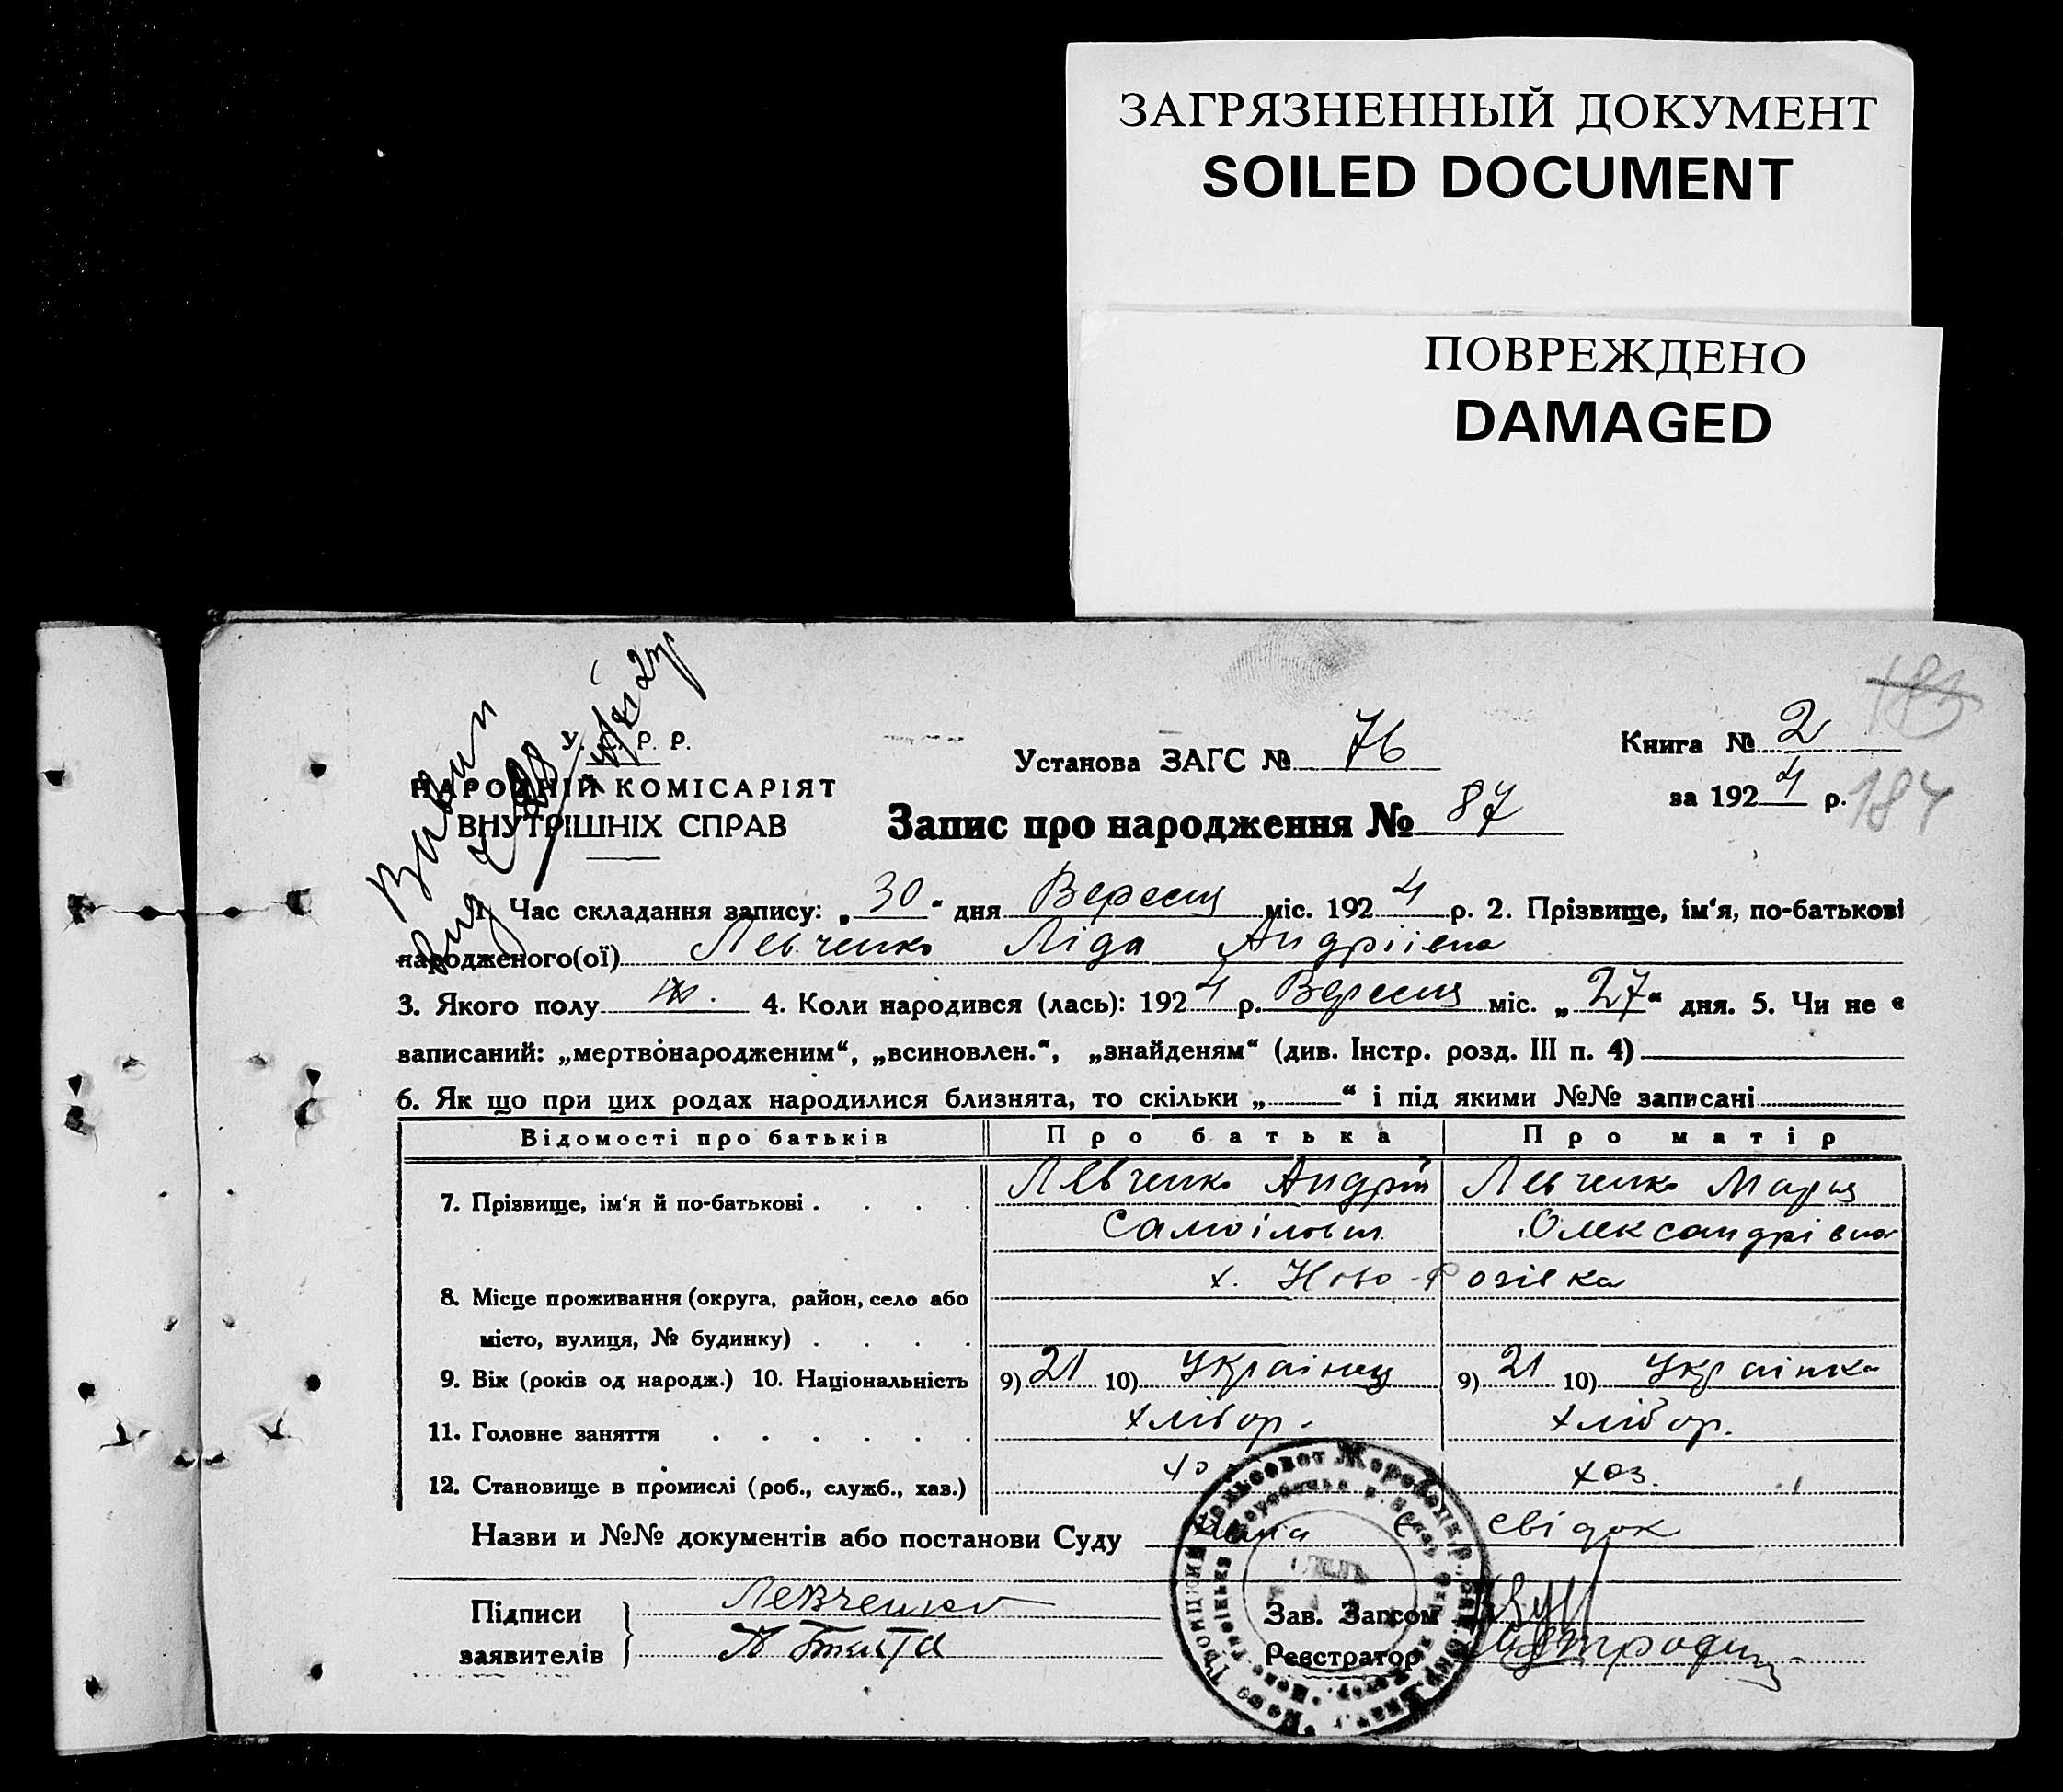 ЗАГРЯЗНЕННЫЙ ДОКУМЕНТ
SOILED DOCUMENT
ПОВРЕЖДЕНО
DAMAGED
183
У. Р. Р.
НАРОДНІЙ КОМІСАРІЯТ
ВНУТРІШНІХ СПРАВ
Установа ЗАГС № 76
Книга № 2
за 1924 р.
184
Запис про народження № 87
1. Час складання запису: „30“ дня Вересня міс. 1924 р. 2. Прізвище, ім‘я, по-батькові
народженого(ої) Левченко Ліда Андріівна
3. Якого полу ж. 4. Коли народився (лась): 1924 р. Вересня міс. „27“ дня. 5. Чи не є
записаний: „мертвонародженим“, „всиновлен.“, „знайденям“ (див. Інстр. розд. III п. 4)
6. Як що при цих родах народилися близнята, то скільки „ “ і під якими №№ записані
Відомості про батьків Про батька Про матір
7. Прізвище, ім‘я й по-батькові . . . . Левченко Андрій Левченко Мария
Самоілович Олександрівна
х. Ново-
8. Місце проживання (округа, район, село або
місто, вулиця, № будинку) . . . .
9. Вік (років од народж.) 10. Національність 9) 21 10) Украінец 9) 21 10) Украінка
11. Головне заняття . . . . . . хлібор. хлібор.
12. Становище в промислі (роб., служб., хаз.) хоз.
Назви и №№ документів або постанови Суду свідок
Підписи
заявителів
Левченко
Зав. Загсом
Реестратор